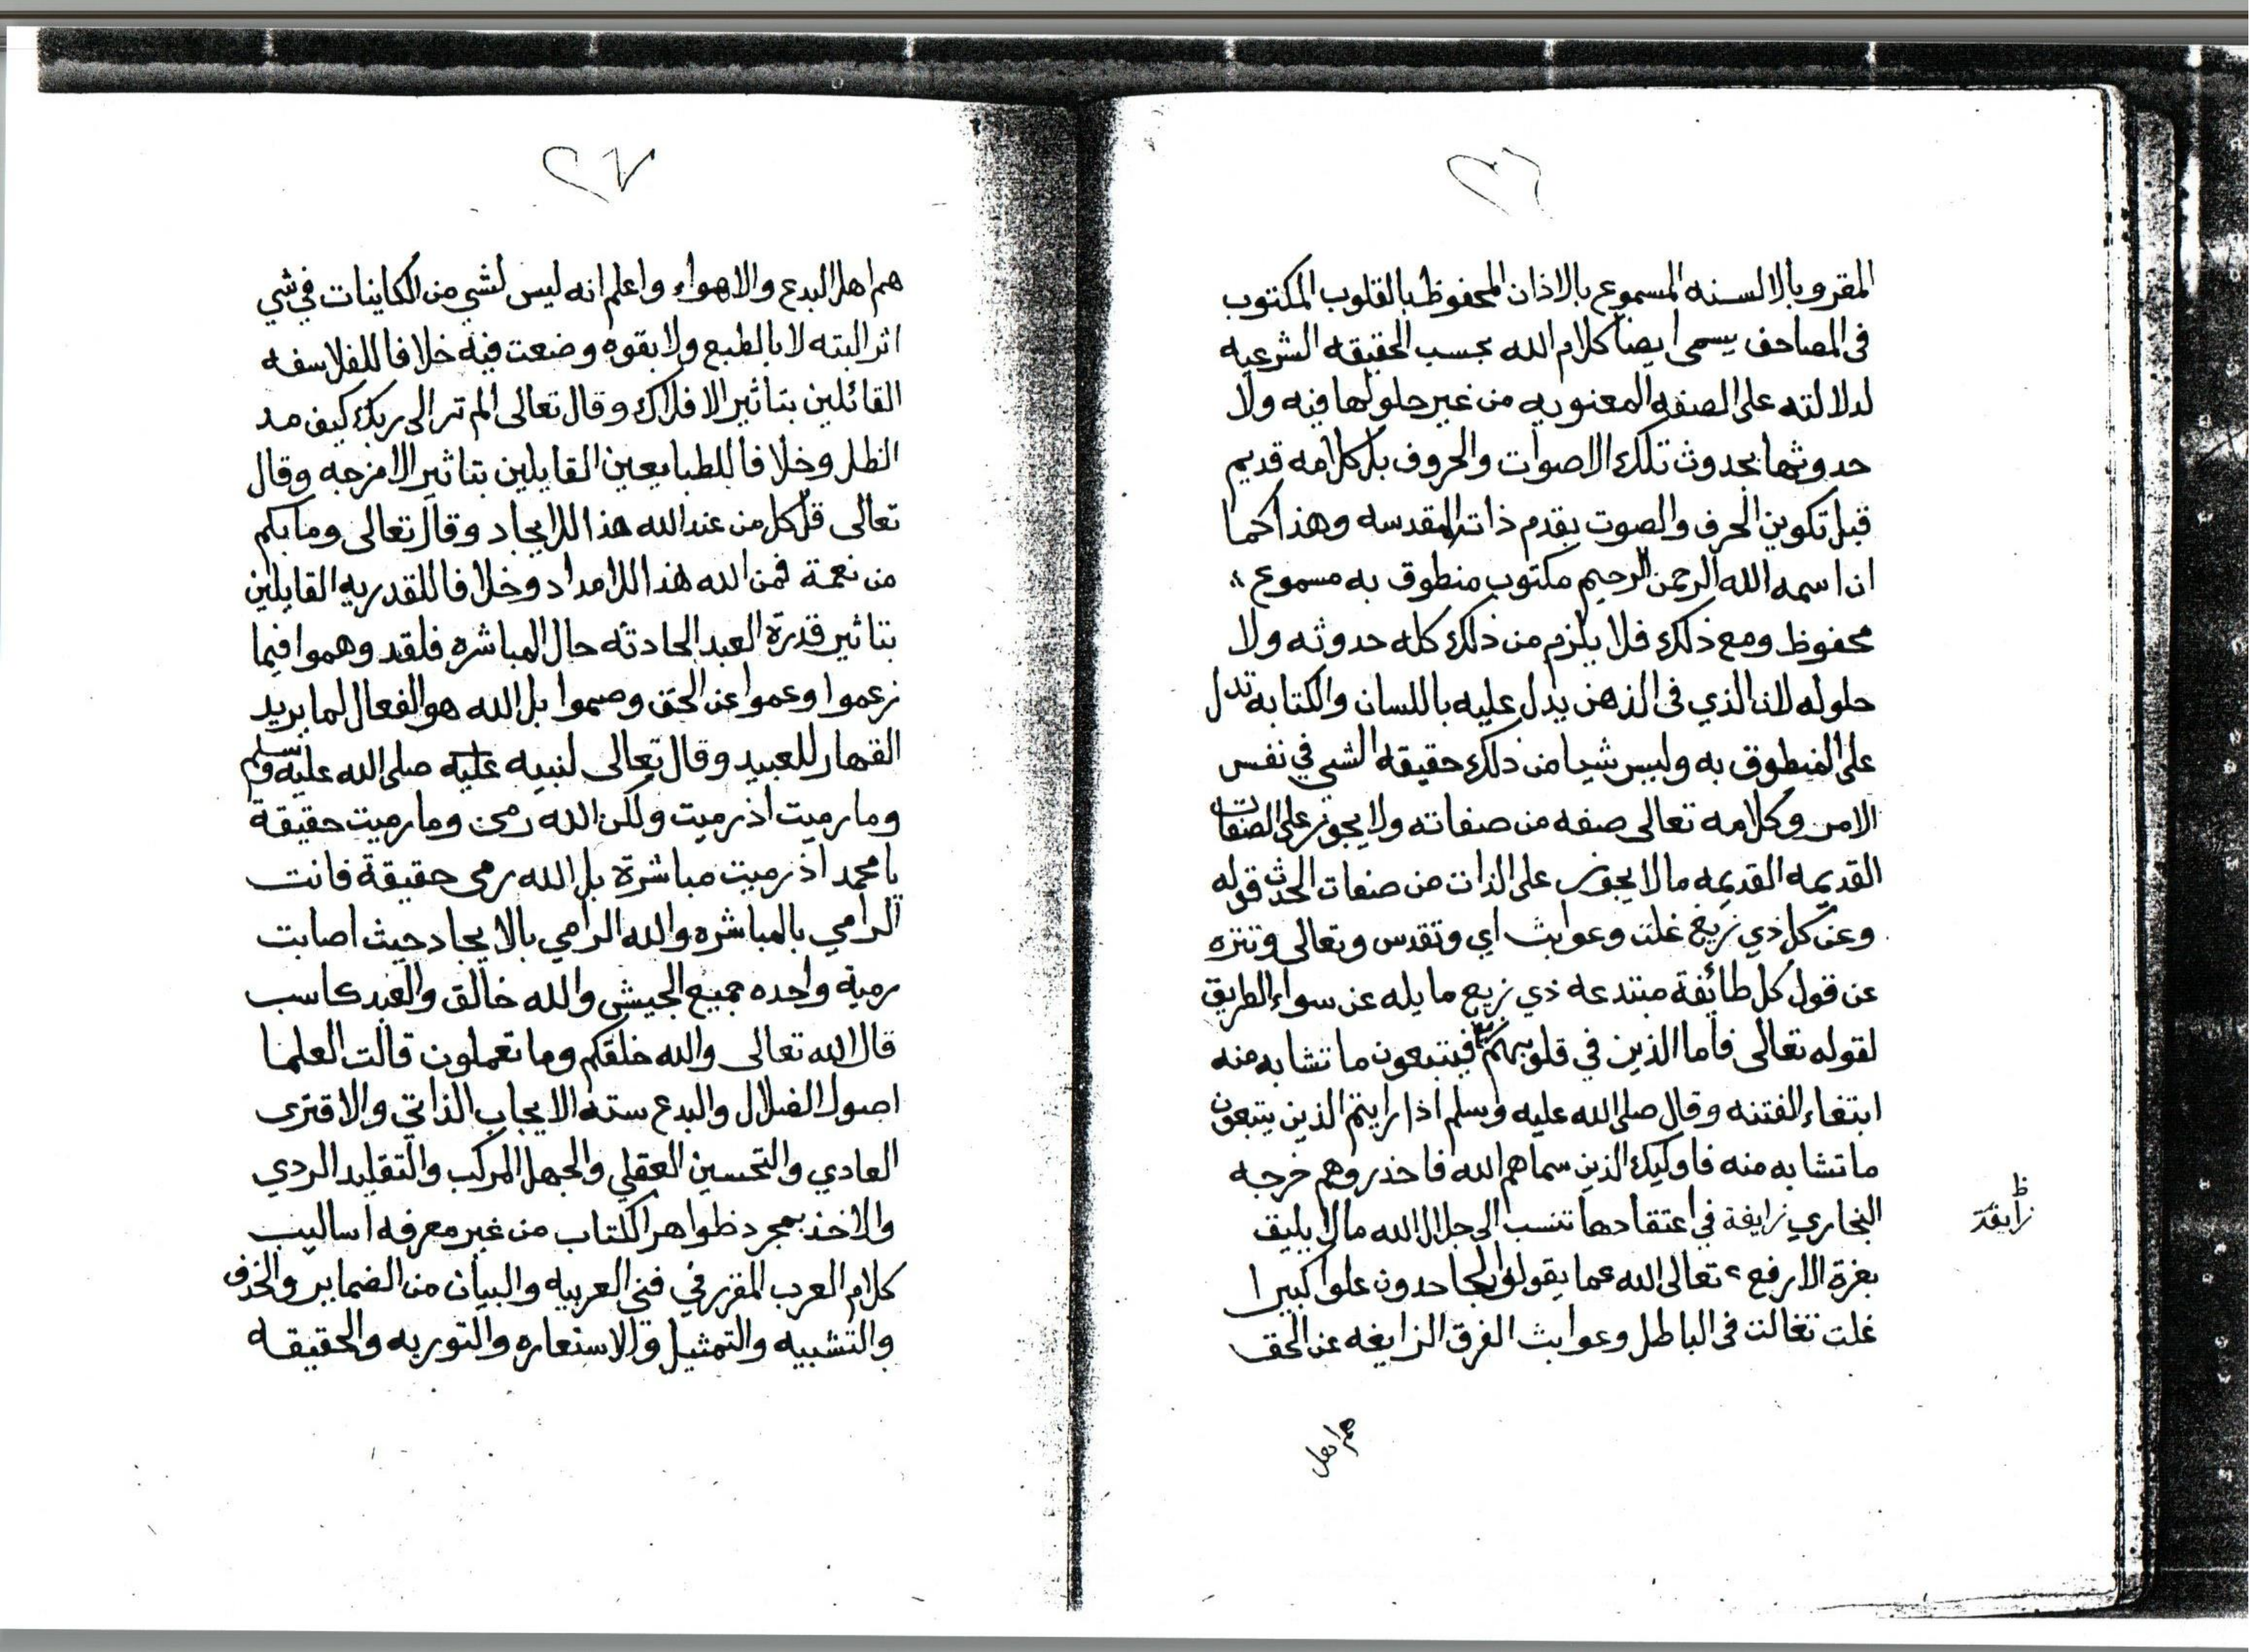 ٢٦
المقرو بالالسنه المسموع بالاذان المحفوظ بالقلوب المكتوب
فى المصاحف يسمى ايضا كلام الله بحسب الحقيقه الشرعيه
لدلالته على الصفه المعنويه من غير حلولها فيه ولا
حدوثها بحدوث تلك الاصوات والحروف بل كلامه قديم
قبل تكوين الحرف والصوت بقدم ذاته المقدسه وهذا كما
ان اسمه الله الرحمن الرحيم مكتوب منطوق به مسموع
محفوظ ومع ذلك فلا يلزم من ذلك كله حدوثه ولا
حلوله لان الذي فى الذهن يدل عليه باللسان والكتابه تدل
على المنطوق به وليس شيا من ذلك حقيقه الشي في نفس
الامر وكلامه تعالى صفه من صفاته ولا يجوز على الصفات
القديمه القديمه مالا يجوز على الذات من صفات الحدث قوله
وعن كل ذي زيغ غلت وعوايث اي وتقدس وتعالى وتنزه
عن قول كل طائفة مبتدعه ذي زيع مايله عن سواء الطريق
لقوله تعالى فاما الذين في قلوبهم زيغ فيتبعون ما تشابه منه
ابتغاء الفتنه وقال صلى الله عليه وسلم اذا رايتم الذين يتبعون
ما تشابه منه فاوليك الذين سماهم الله فاحذروهم خرجه
البخاري زايغة في اعتقادها تنسب الى جلال الله مالا يليق
ظ
زايغة
بعزة الارفع تعالى الله عما يقولوا الجاحدون علوا كبيرا
غلت تغالت فى الباطل وعوايث الفرق الزايغه عن الحق
هم اهل
٢٧
هم اهل البدع والاهواء واعلم انه ليس لشي من الكاينات في شي
اثر البته لا بالطبع ولا بقوه وضعت فيه خلافا للفلاسفه
القائلين بتاثير الافلاك وقال تعالى الم تر الى ربك كيف مد
الظل وخلافا للطبايعين القايلين بتاثير الامزجه وقال
تعالى قل كل من عند الله هذا اللايجاد وقال تعالى وما بكم
من نعمة فمن الله هذا اللامداد وخلافا للقدريه القايلين
بتاثير قدرة العبد الحادثه حال المباشره فلقد وهموا فيما
زعموا وعموا عن الحق وصموا بل الله هو الفعال لما يريد
القهار للعبيد وقال تعالى لنبيه عليه صلى الله عليه وسلم
وما رميت اذ رميت ولكن الله رمى وما رميت حقيقة
يا محمد اذ رميت مباشرة بل الله رمى حقيقة فانت
الرامي بالمباشره والله الرامي بالايجاد حيث اصابت
رمية واحده جميع الجيش والله خالق والعبد كاسب
قال الله تعالى والله خلقكم وما تعملون قالت العلما
اصول الضلال والبدع سته الايجاب الذاتي والاقترى
العادي والتحسين العقلي والجهل المركب والتقليد الردي
والاخذ بمجرد ظواهر الكتاب من غير معرفه اساليب
كلام العرب المقرر في فني العربيه والبيان من الضماير والحذف
والتشبيه والتمثيل والاستعاره والتوريه والحقيقه